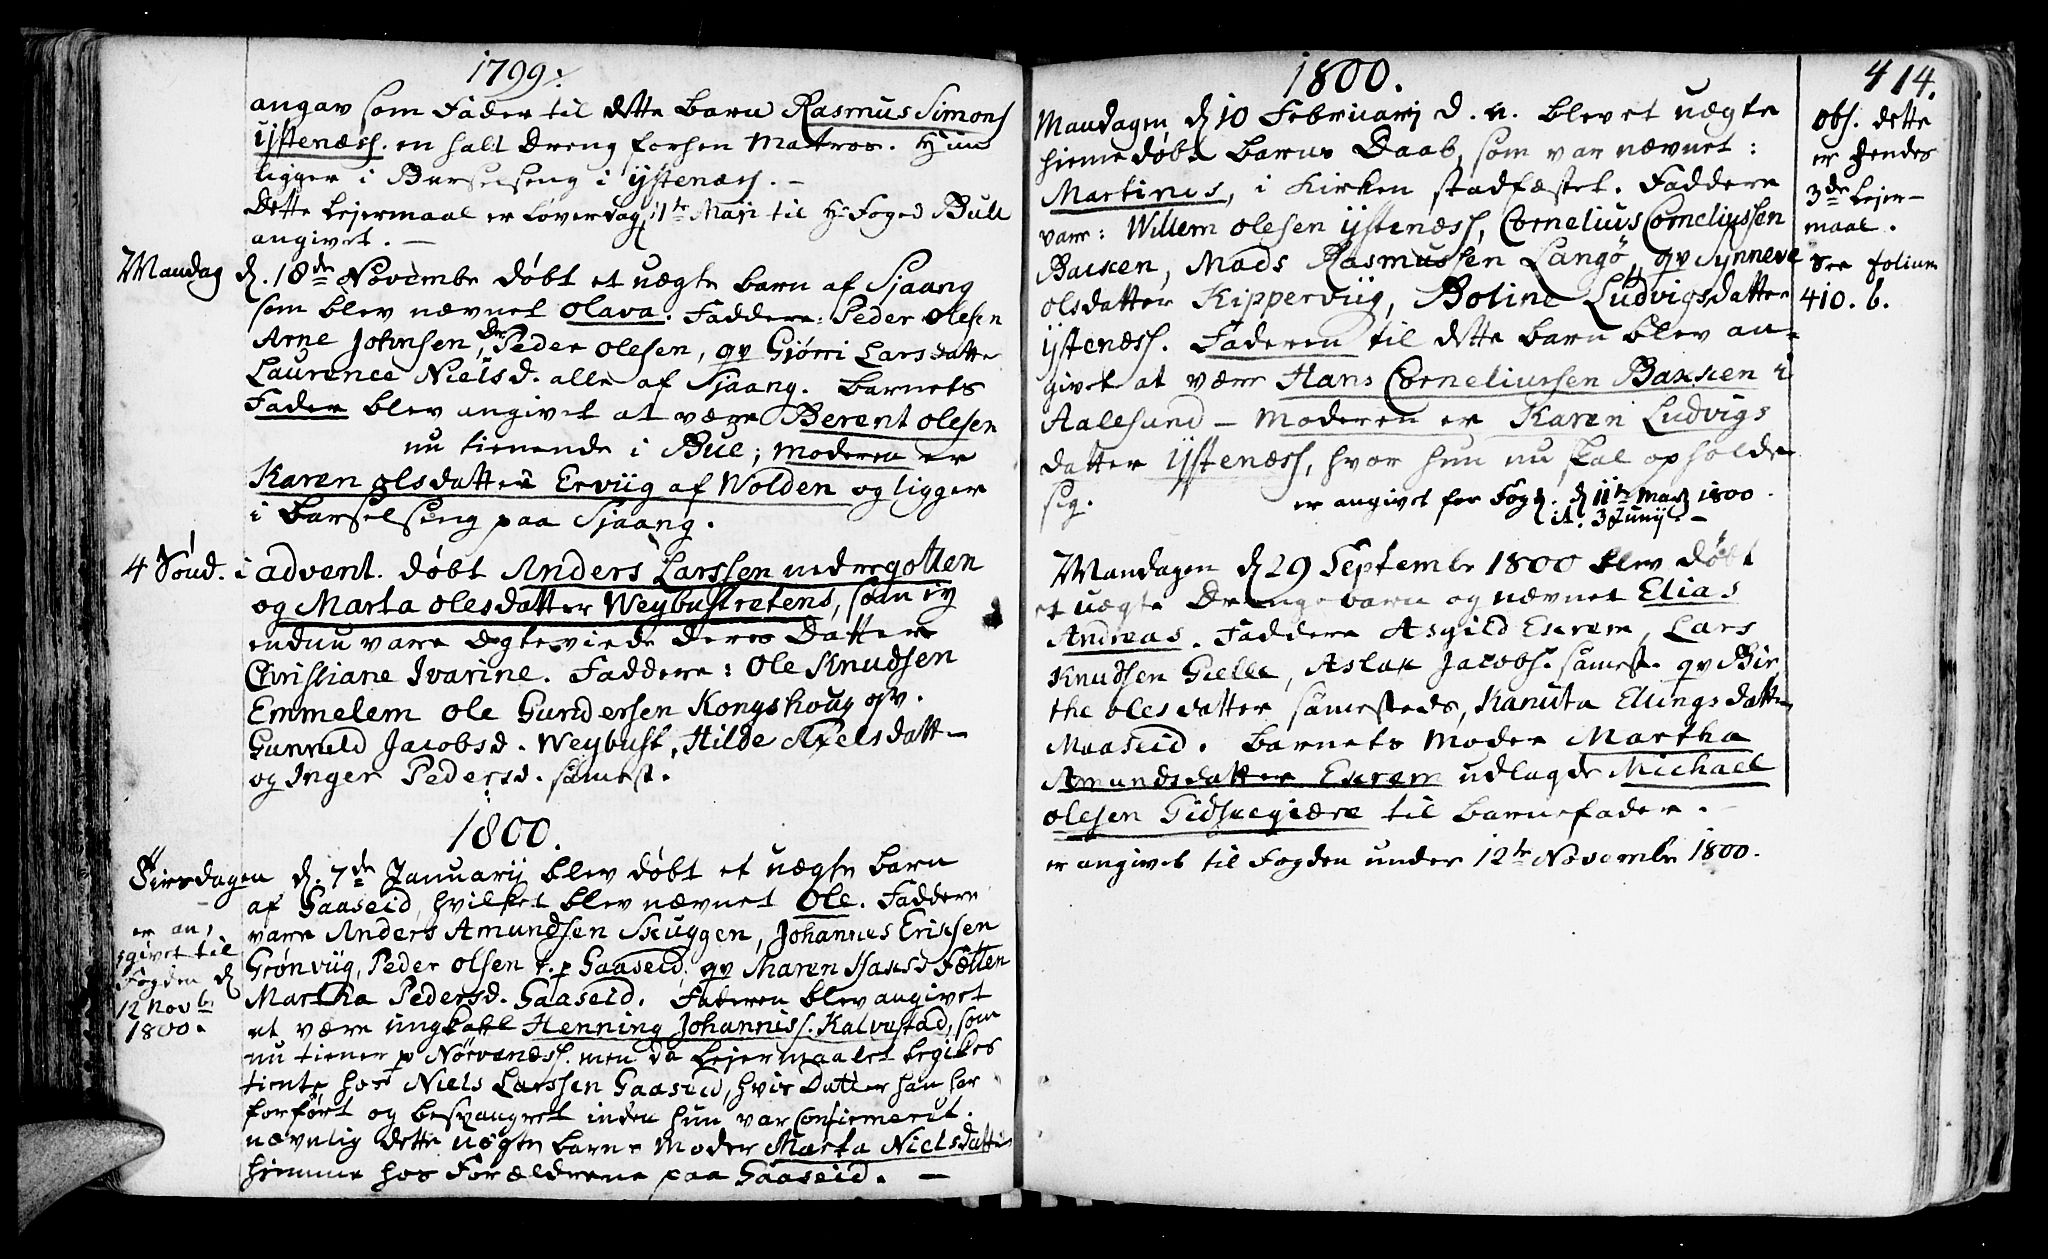 1799.
angav som Fader til dette barn Rasmus Simons
ÿstenæss. en halt Dreng forhen Matros. Hun
ligger i Barselseng i ÿstenæss. –
Dette Lejermaal er Løverdag 11te Maji til Hr Foged Bull
angivet. –
Mandag d. 18de Novembr døbt et uægte barn af Sjaang
som blev nævnet Olava. Faddere: Peder Olesen
Arne Johnsen, Peder Olesen, qv Gjørri Larsdatte
Laurence Nielsd. alle af Sjaang. Barnets
Fader blev angivet at være Berent Olesen
nu tienende i Bue; Moderen er
Karen Olsdatter Erviig af Wolden og ligger
i Barselseng paa Sjaang.
4 Sønd. i advent. døbt Anders Larssen nedregotten
og Marta Olesdatter Weybustretens, som ey
endnu vare Ægteviede deres Datter
Christiane Ivarine. Faddere: Ole Knudsen
Emmelem Ole Gundersen Kongshoug qv.
Gunnild Jacobsd. Weybust, Hilde Axelsdatt–
og Inger Pedersd. samest.
1800.
Tirsdagen d. 7de Januarij blev døbt et uægte barn
af Gaaseid, hvilket blev nævnet Ole. Faddere
vare Anders Amundsen Skuggen, Johannes Eriksen
Grønviig, Peder Olsen Gaaseid. qv Maren Hansd Fætten
Martha Pedersd. Gaaseid. Faderen blev angivet
at være ungkarl Henning Johanniss. Kalvestad, som
nu tiener p Nörvenæss. men da Lejermaalet begikes
tiente hos Niels Larssen Gaaseid, hvis Datter han har
forført og besvangret inden hun var Confirmerit.
nævnlig dette uægte barns Moder Marta Nielsdatter
hiemme hos Forældrene paa Gaaseid. –
er an,
givet til
Fogden d
12 Novb
1800.
1800.
414.
Mandagen d 10 Februarij d. a. blevet uægte
hiemedøbt barns Daab, som var nævnet:
Martinus, i Kirken stadfæstet. Faddere
vare: Willem Olesen ÿstenæss, Cornelius Corneliussen
Bakken, Mads Rasmussen Langö, qv Synneve
Olsdatter Kipperviig, Boline Ludvigsdatter
ÿstenæss. Faderen til dette barn blev an–
givet at være Hans Corneliussen Bakken i
Aalesund – Moderen er Karen Ludvigs
datter ÿstenæss, hvor hun nu skal opholde
sig. er angivet for Fogd. d 11te Martz 1800.
it. 3 Junij –
obs. dette
er hendes
3de Lejer–
maal.
See folium
410. b.
Mandagen d 29 Septembr 1800 blev døbt
et uægte Drengebarn og nævnet Elias
Andreas. Faddere Asgild Ekrem, Lars
Knudsen Gielle, Aslak Jacobs. samest. qv Bir
the Olesdatter samesteds, Kanuta Ellingsdatter
Maaseid. Barnets Moder Martha
Amundsdatter Ekrem udlagde Michael
Olesen Gidskegiære til Barnefader. –
er angivet til Fogden under 12te Novembr 1800.